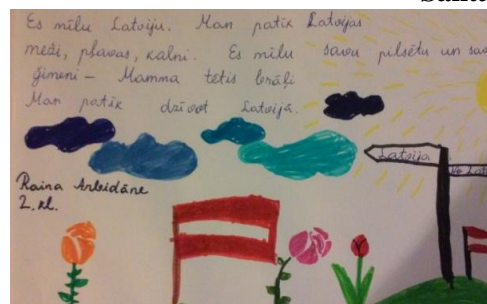 Es mīlu Latviju. Man patīk Latvijas
meži, pļavas, kalni. Es mīlu savu pilsētu un
ģimeni – Mamma tētis brāļi
Man patīk dzīvot Latvijā.
Latvija
Raina
2. kl.